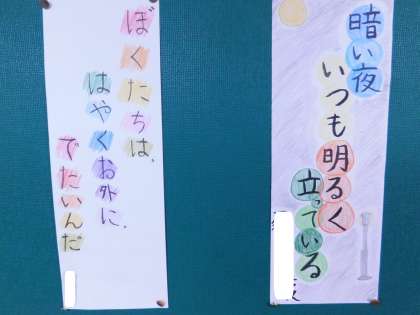 暗い夜
いつも明るく
立っている
ぼくたちは、
はやくお外に、
でたいんだ